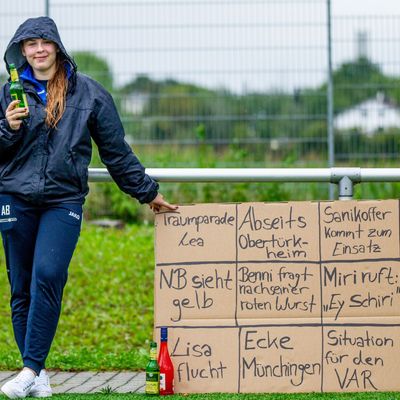 Traumparade
Lea
Abseits
Obertürk-
heim
Sanikoffer
kommt zum
Einsatz
NB sieht
gelb
Benni fragt
nach seiner
roten Wurst
Miri ruft:
"Ey Schiri"
Lisa
flucht
Ecke
Münchingen
Situation
für den
VAR
AB
JAKO